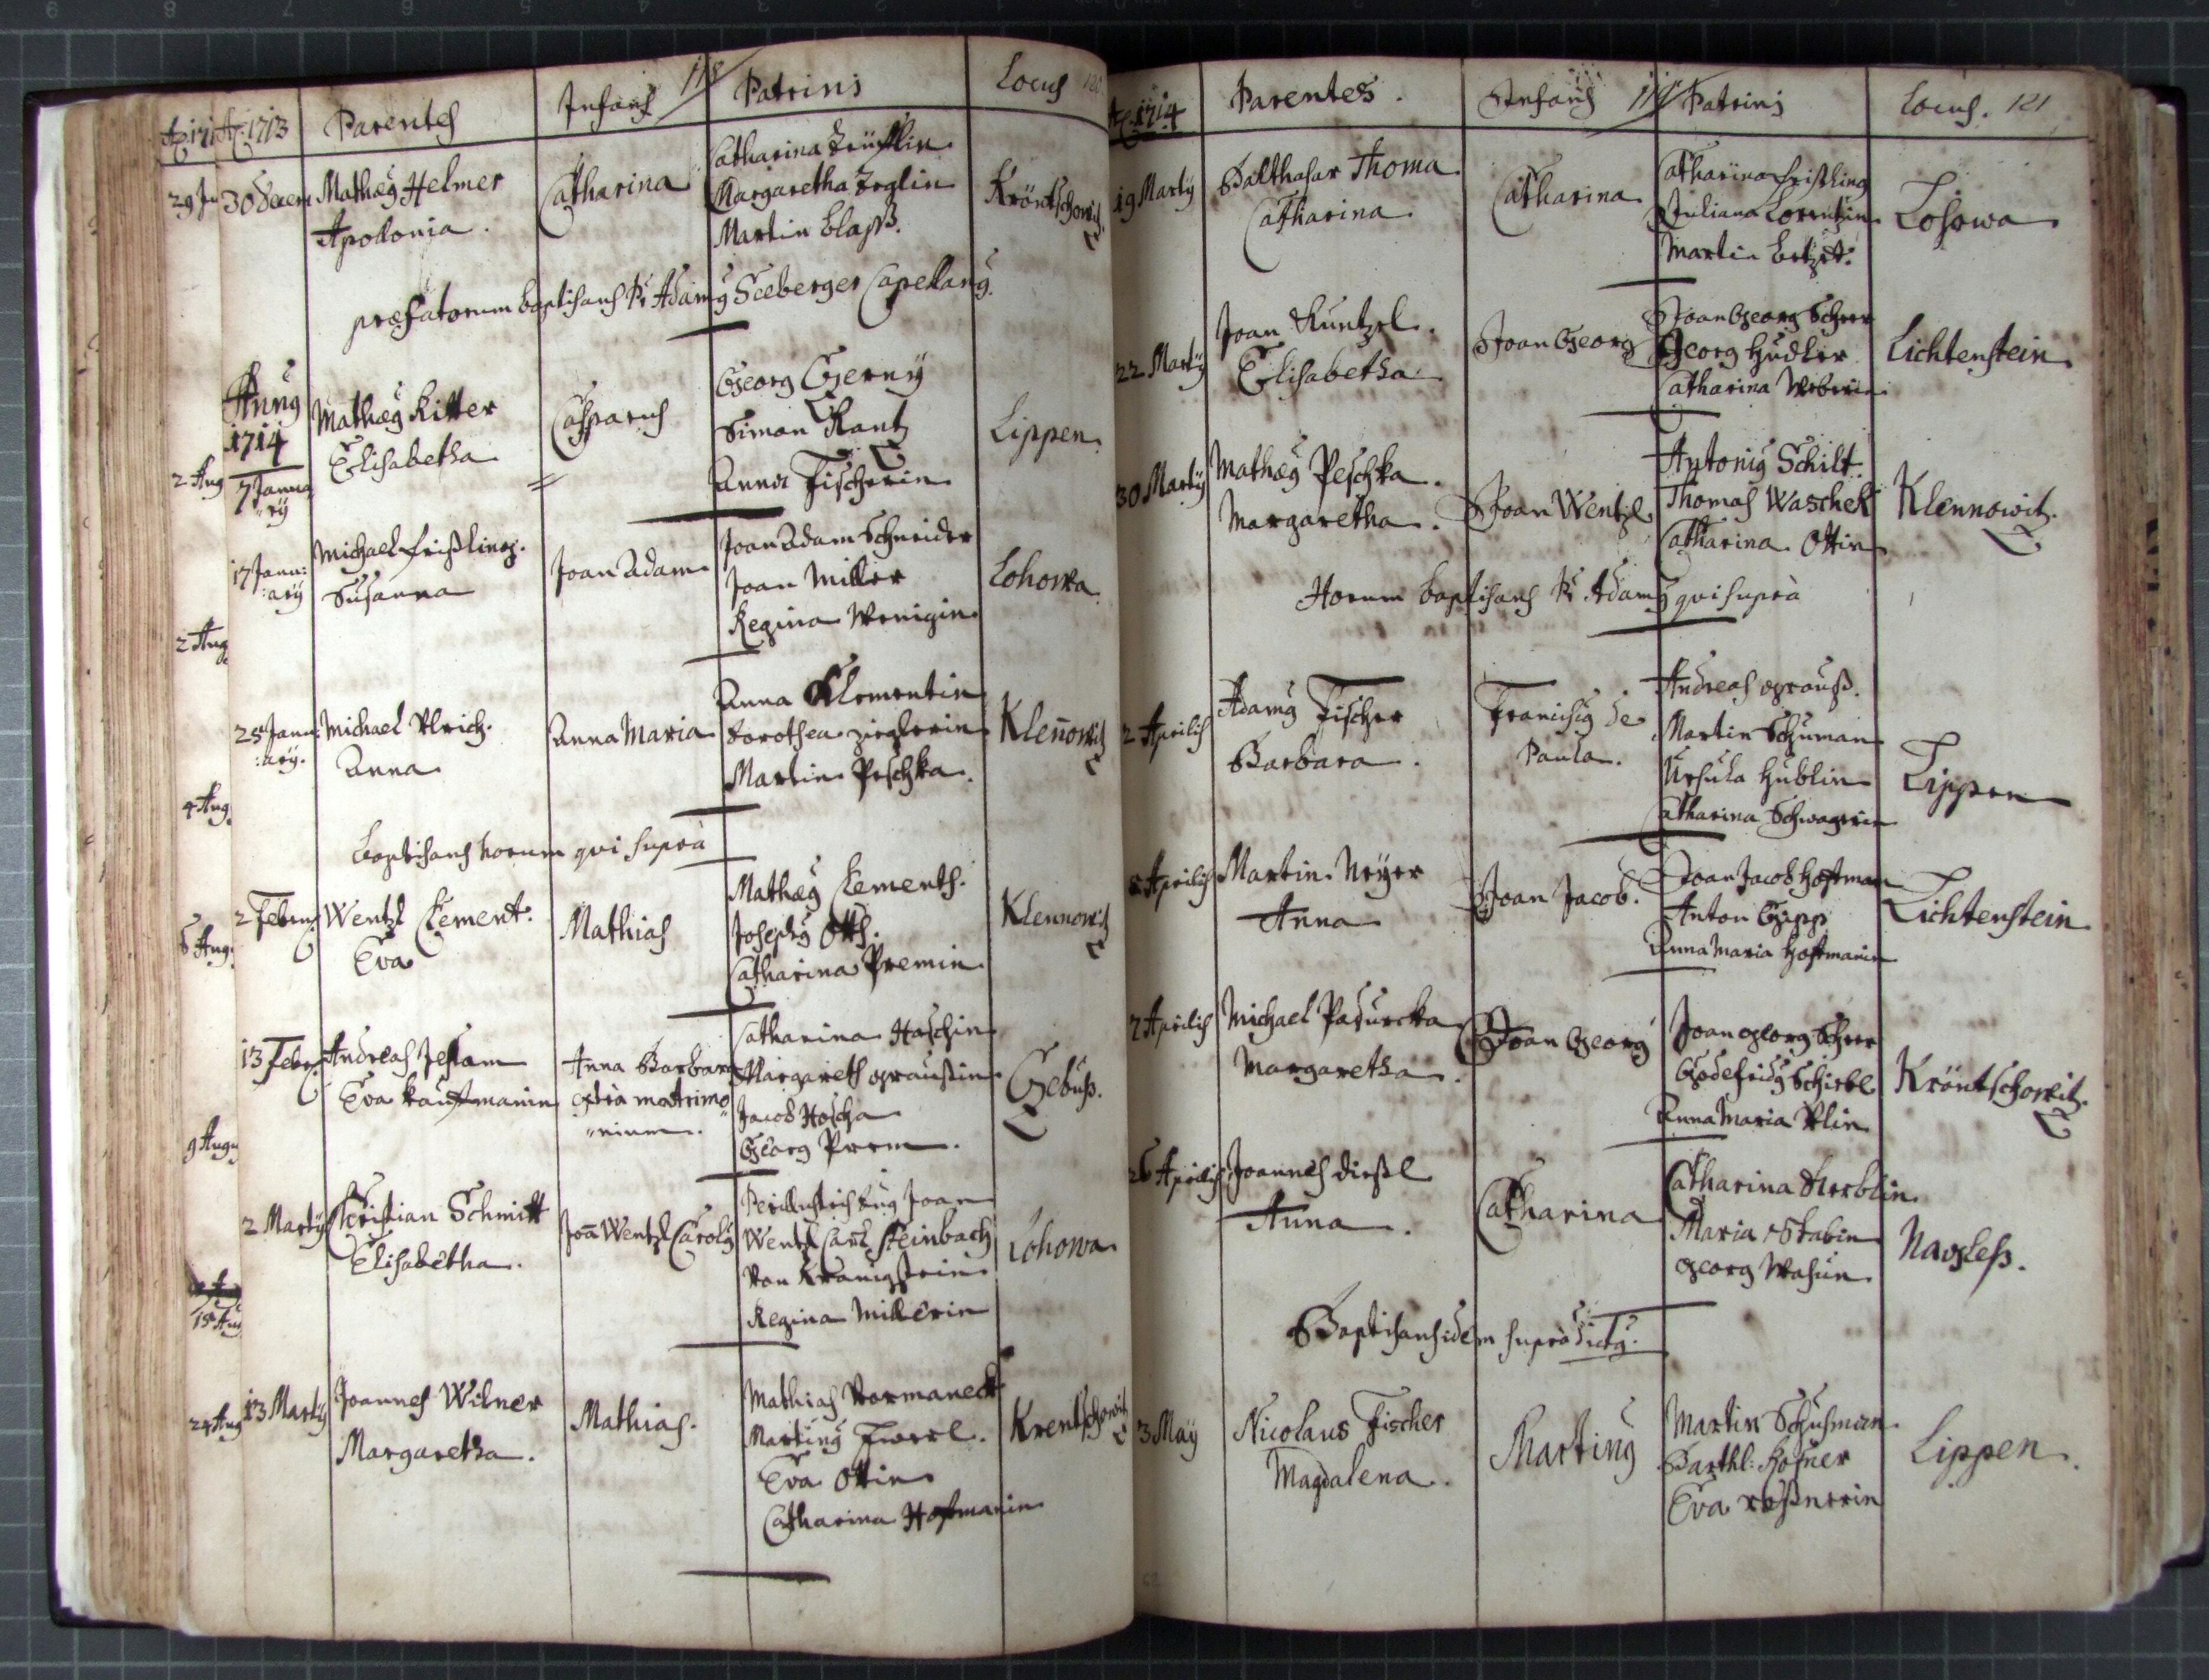 Ao 1713 Parentes Infans 118 Patrini Locus 120
30 Decem Mathæus Helmer
Apolonia.
Catharina
Catharina
Margaretha Zeglin
Martin Blass.
Kröntschowitz
præfatorum baptisans Pr Adamus Seeberger Capellanus.
Annus
1714
7 Janua
ry
Mathæus Ritter
Elisabetha
Casparus
Georg Gerny
Simon Kantz
Anna Fischerin
Lippen.
17 Janu:
:ary
Michael Frißling.
Susanna
Joan Adam
Joan Adam Schneider
Joan Miller
Regina Wenigin
Lohowa
25 Janu:
:ary.
Michael Ulrich.
Anna
Anna Maria
Anna Klementin
Dorothea Zieglerin
Martin Peschka.
Klenowitz
Baptisans horum qui supra
2 Febru:
Wentzl Clement.
Eva
Mathias
Mathæus Clements.
Josephus Otth.
Catharina Premin
Klennowitz
13 Febr:
Andreas Jessam
Eva Kauffmanin
Anna Barbara
extra matrimo
nium.
Catharina Haschin
Margareth Graussin
Jacob Hascha
Georg Prem.
Gebuss.
2 Marty
Christian Schmitt
Elisabetha.
Joa Wentzl Carolus
Perillustris Dnus Joan
Wentzl Carl Steinbach
Von Kranigstein
Regina Millerin
Lohowa
13 Marty
Joannes Wilner
Margaretha.
Mathias.
Mathias Vormaneck
Martinus
Eva Ottin
Catharina Hoffmanin
Krentschowitz
29 Ju
2 Aug
2 Aug
4 Aug.
6 Aug.
9 Augu
15 Aug
24 Aug
Ao 1714 Parentes. Infans 119 Patrini Locus. 121
19 Marty
Balthasar Thoma
Catharina.
Catharina
Catharina Frißling
Juliana Lorentzin
Martin
Lohowa
22 Marty
Joan Kuntzel.
Elisabetha
Joan Georg
Joan Georg Scherr
Georg Hudler
Catharina Weberin
Lichtenstein
30 Marty
Mathæus Peschka.
Margaretha.
Joan Wentzl
Antonius Schilt.
Thomas Waschek
Catharina Ottin
Klennowitz.
Horum baptisans Pr Adamus qui supra
2 Aprilis
Adamus Fischer
Barbara.
Francisus de
Paula.
Andreas Grauss.
Martin Schuman
Ursula Hublin
Catharina Schwagerin
Lippen
5 Aprilis
Martin Meyer
Anna
Joan Jacob.
Joan Jacob Hoffman
Anton Gipp
Anna Maria Hoffmanin
Lichtenstein
7 Aprilis
Michael Padurcka
Margaretha.
Joan Georg
Joan Georg Scherr
Godefridus Schirbl
Anna Maria Ulin
Kröntschowitz.
26 Aprilis
Joannes Dirßl
Anna.
Catharina
Catharina
Maria Skabin
Georg Wasün
Nagless.
Baptisans idem supradictus.
3 May
Nicolaus Fischer
Magdalena.
Martinus
Martin Schuhman
Barthl: Hofner
Eva
Lippen.